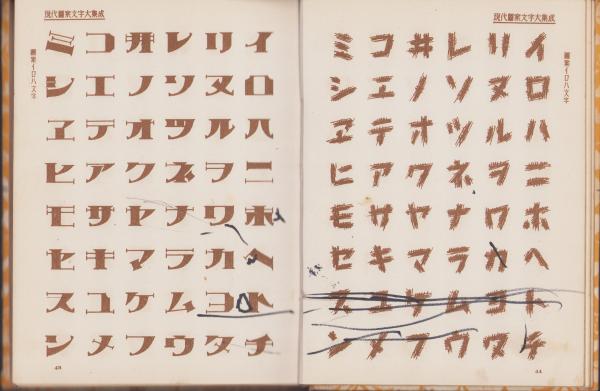 現代圖案文字大集成
圖案イロハ文字
イロハニホヘトチ
リヌルヲワカヨタ
レソツネナラムウ
ヰノオクヤマケフ
コエテアサキユメ
ミシヱヒモセスン
44
現代圖案文字大集成
イロハニホヘトチ
リヌルヲワカヨタ
レソツネナラムウ
ヰノオクヤマケフ
コエテアサキユメ
ミシヱヒモセスン
圖案イロハ文字